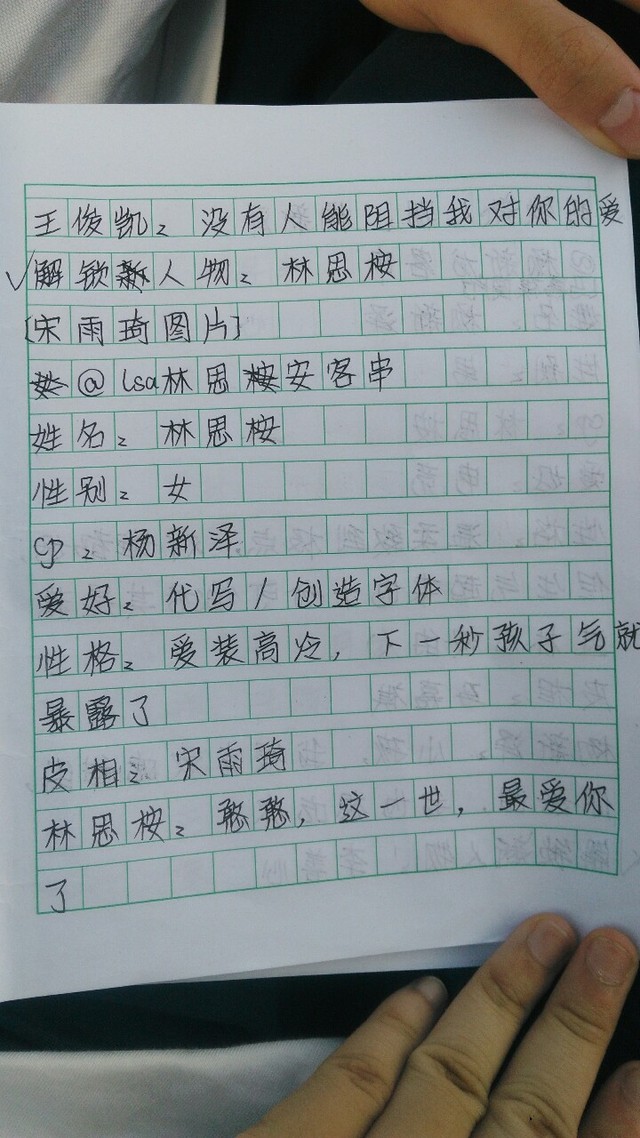 王俊凯：没有人能阻挡我对你的爱
√解锁新人物：林思桉
[宋雨琦图片]
@lsa林思安客串
姓名：林思桉
性别：女
cp：杨新泽
爱好：代写/创造字体
性格：爱装高冷，下一秒孩子气就
暴露了
皮相：宋雨琦
林思桉：憨憨，这一世，最爱你
了